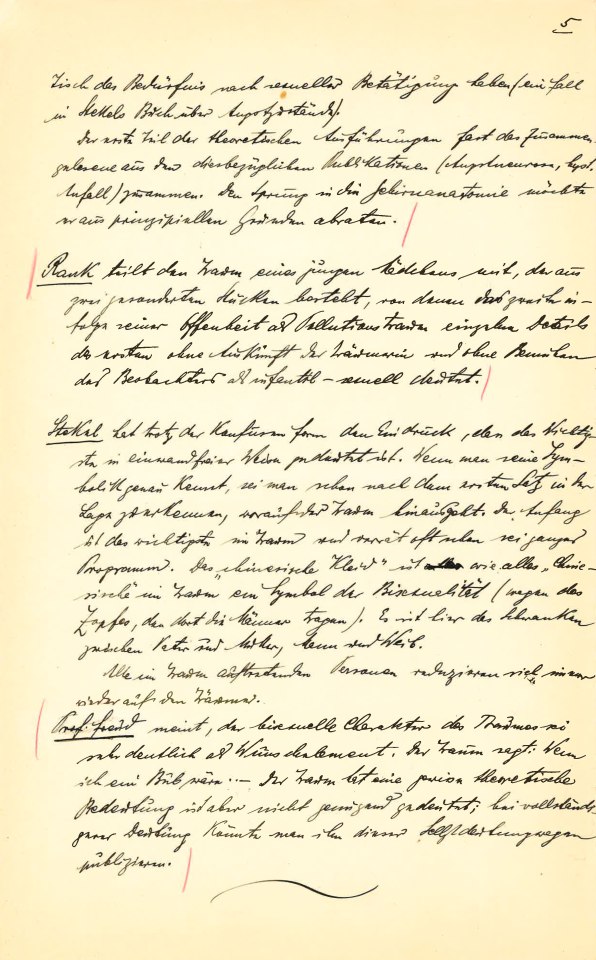 5
tisch das Bedürfnis nach sexueller Betätigung haben (ein Fall
in Stekels Buch über Angstzustände).
Der erste Teil der theoretischen Ausführungen fasst das Zusammen-
gelesene aus den diesbezüglichen Publikationen (Angstneurose, hyst.
Anfall) zusammen. Den Sprung in die Gehirnanatomie möchte
er aus prinzipiellen Gründen abraten.
Rank teilt den Traum eines jungen Mädchens mit, der aus
zwei gesonderten Stücken besteht, von denen das zweite in-
folge seiner Offenheit als Pollutionstraum einzelne Details
des ersten ohne Auskunft der Träumerin und ohne Bemühen
des Beobachters als infantil-sexuell deutet.
Stekel hat trotz der konfusen Form den Eindruck, dass das Wichtig-
ste in einwandfreier Weise gedeutet ist. Wenn man seine Sym-
bolik genau kennt, sei man schon nach dem ersten Satz in der
Lage zu erkennen, worauf der Traum hinausgeht. Der Anfang
ist das wichtigste im Traum und verrät oft schon sei ganzes
Programm. Das „chinesische Kleid" ist wie alles „Chine-
sische" im Traum ein Symbol der Bisexualität (wegen des
Zopfes, den dort die Männer tragen). Es ist hier das Schwanken
zwischen Vater und Mutter, Mann und Weib.
Alle im Traum auftretenden Personen reduzieren sich immer
wieder auf den Träumer.
Prof. Freud meint, der bisexuelle Charakter des Traumes sei
sehr deutlich als Wunschelement. Der Traum sagt: Wenn
ich ein Bub wäre ..- Der Traum hat eine gewisse theoretische
Bedeutung ist aber nicht genügend gedeutet; bei vollständi-
gerer Deutung könnte man ihn dieser Selbstdeutung wegen
publizieren.